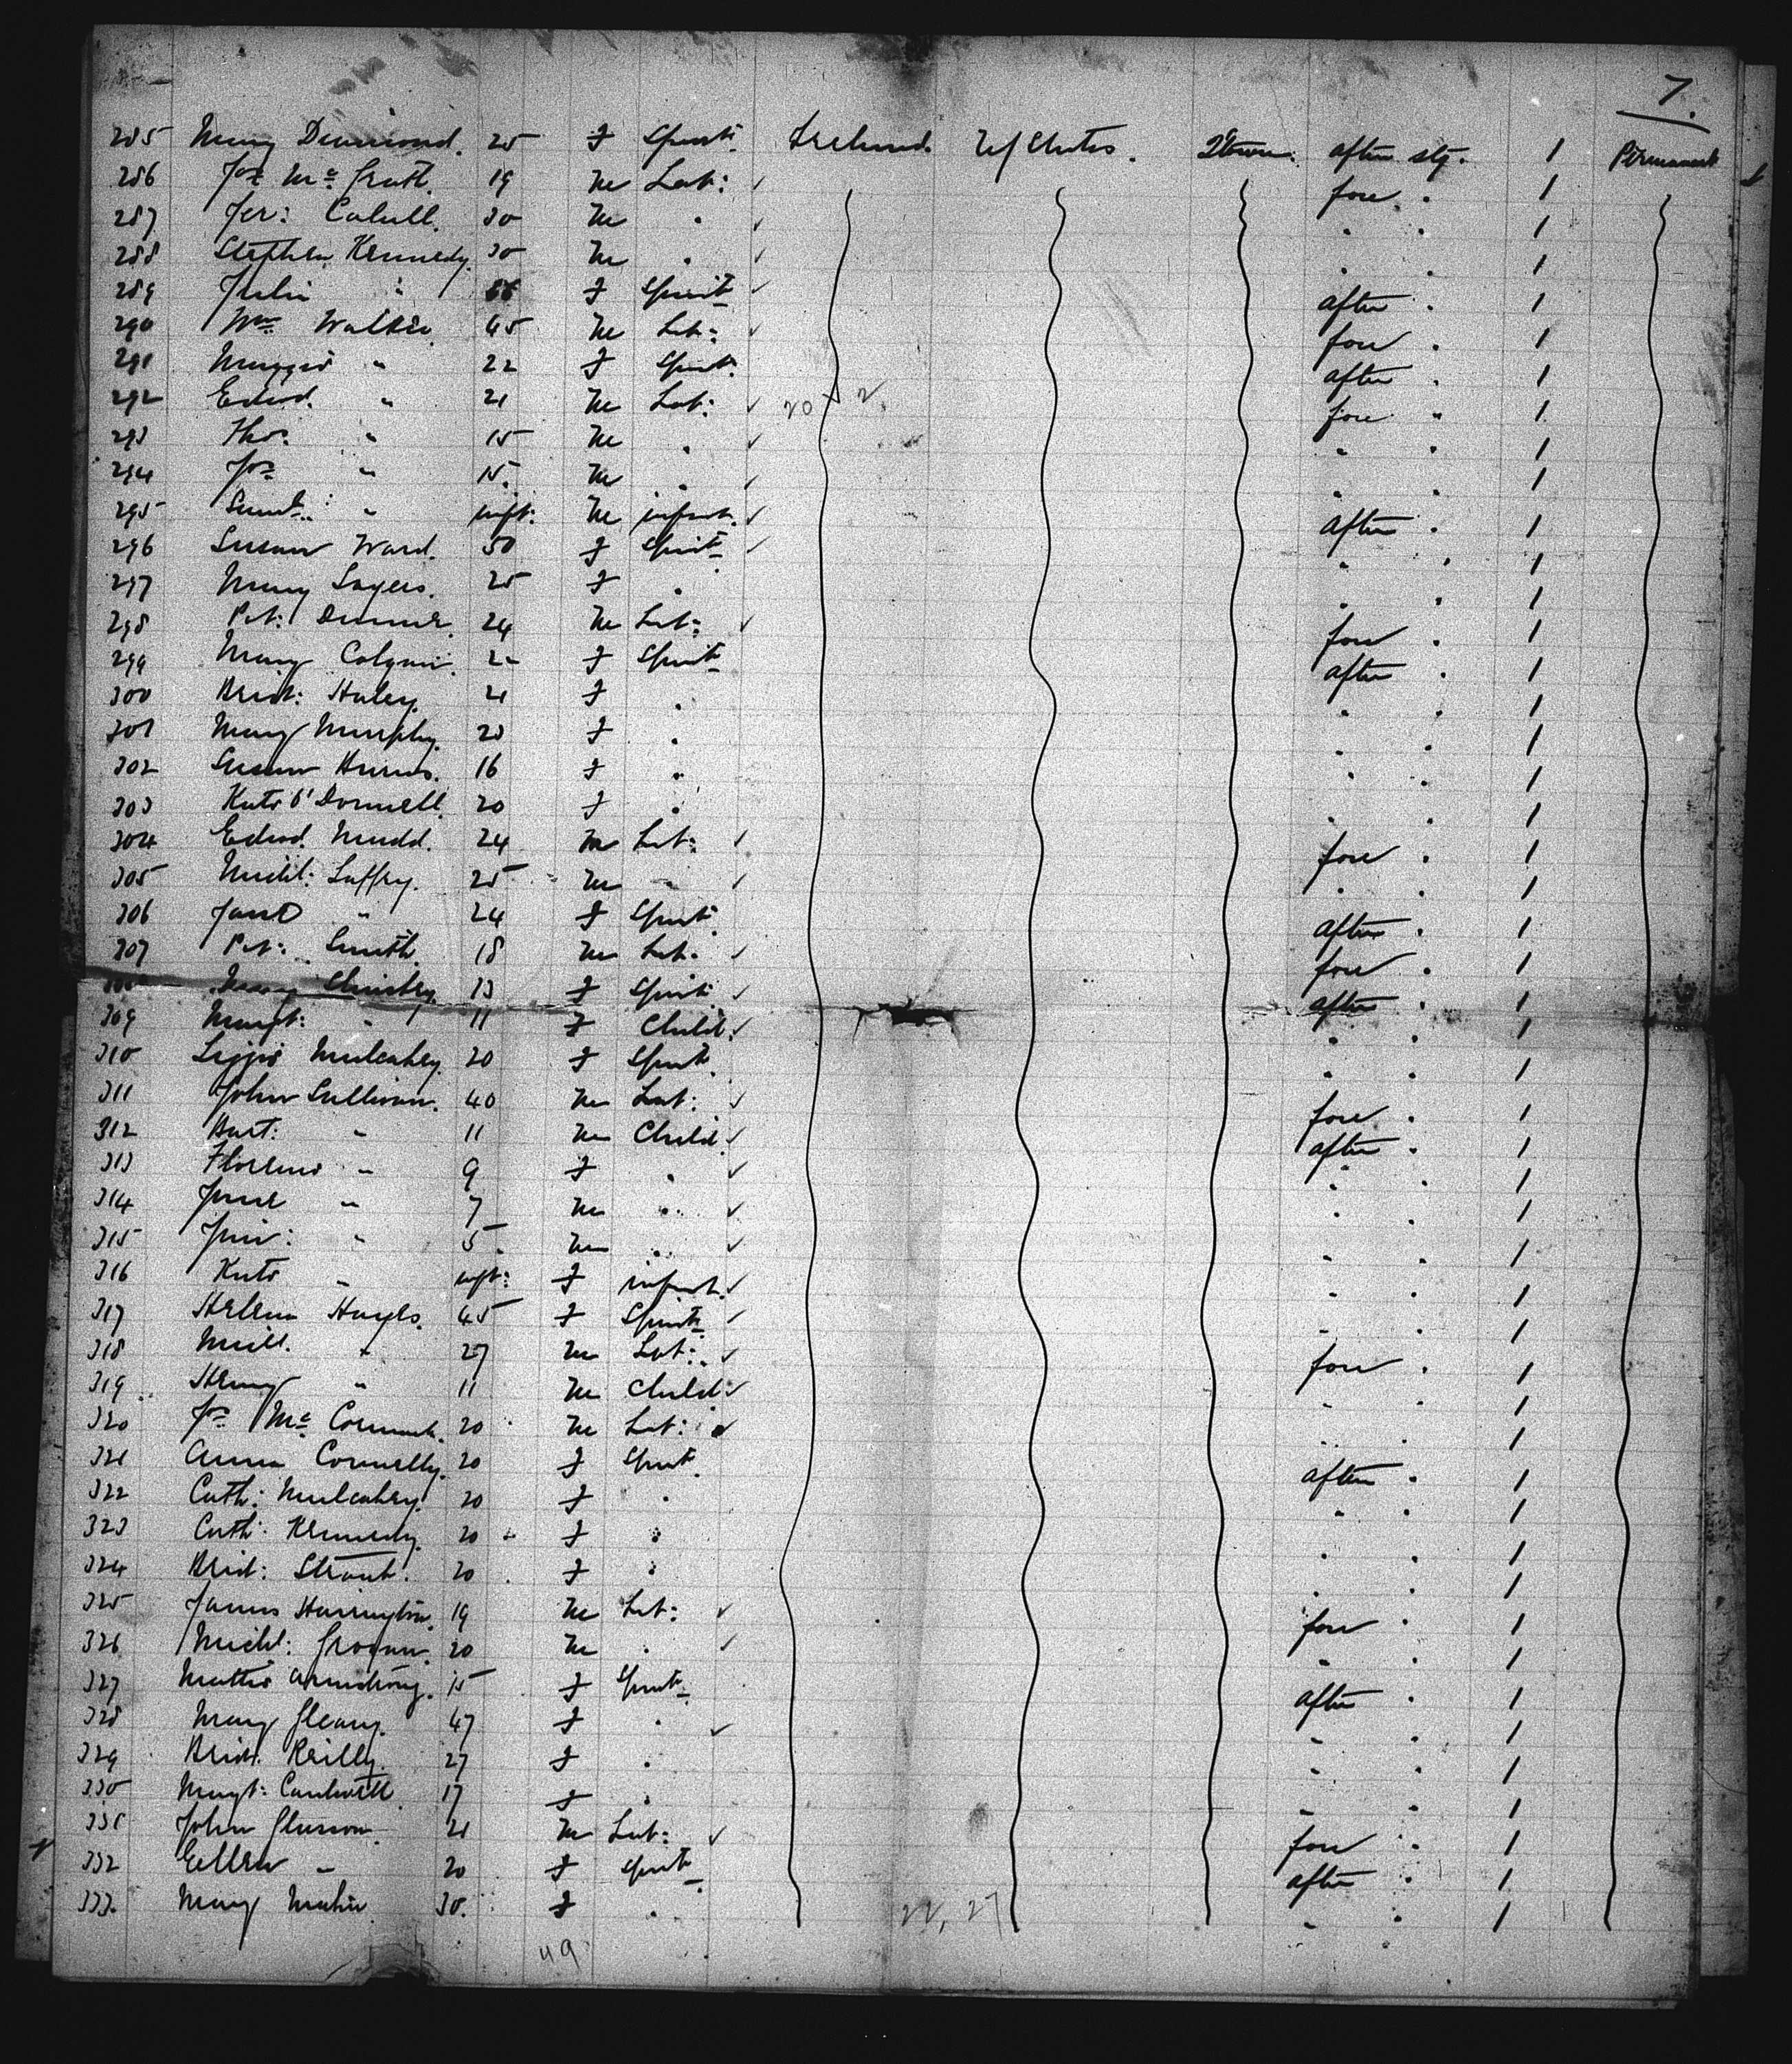 7.
285 Mary Desmond. 25 F Spinst. Ireland. U/States. Qtown. after stg. 1 Permanent
286 Jas Mc Grath. 19 M Lab: ✓ fore . 1
287 Jer: Cahill. 30 M . ✓ . . 1
288 Stephen Kennedy. 30 M . ✓ . . 1
289 Julia " F Spinst ✓ after . 1
290 Wm 45 M Lab: ✓ fore . 1
291 Maggie " 22 F Spinst. after . 1
292 Edwd. " 21 M Lab: ✓ 20 2 fore " 1
293 Thos. " 15 M . ✓ . . 1
294 Jas " 15. M . ✓ . . 1
295 " inft. M infant. ✓ after . 1
296 Susan Ward. 50 F Spinst ✓ . . 1
297 Mary Sayers. 25 F . . . 1
298 Pat: 24 M Lab: ✓ fore . 1
299 Mary F Spinst after . 1
300 Brid: Haley. 21 F . . . 1
301 Mary Murphy. 23 F . . . 1
302 Susan 16 F . . . 1
303 Kate O'Donnell. 20 F . . . 1
304 Edwd. Mudd. 24 M Lab: ✓ fore . 1
305 Michl: Laffey. 25 M " ✓ . . 1
306 Jane " 24 F Spinst. after . 1
307 Pat: Smith. 18 M Lab. ✓ fore . 1
13 F Spinst. ✓ after . 1
309 Margt: " 11 F Child. ✓ . . 1
310 Lizzie Mulcahey. 20 F Spinst. . . 1
311 John Sullivan. 40 M Lab: ✓ fore . 1
312 Bart: " 11 M Child. ✓ after . 1
313 Florence " 9 F . ✓ . . 1
314 " 7 M . ✓ . . 1
315 " 5. M . ✓ . . 1
316 Kate " inft: F infant. ✓ . . 1
317 Helena Hayes. 45 F Spinst. ✓ . . 1
318 Michl. " 27 M Lab: ✓ fore . 1
319 Henry " 11 M Child: ✓ . . 1
320 Jas Mc Cormack. 20 M Lab: ✓ . . 1
321 Anna Connelly. 20 F Spinst. after . 1
322 Cath: Mulcahey. 20 F . . . 1
323 Cath: Kennedy. 20 F . . . 1
324 Brid: 20 F . . . 1
325 James Harrington. 19 M Lab: ✓ fore . 1
326 Michl: Grogan. 20 M . ✓ . . 1
327 Mattie Armstrong. 15 F Spinst. after . 1
328 Mary Gleany. 47 F . ✓ . . 1
329 Brid. Reilly. 27 F . . . 1
330 Margt: Cantwell. 17 F . . . 1
331 John Gleeson. 21 M Lab: ✓ fore . 1
332 Ellen " 20 F Spinst after . 1
333. Mary 30. F . 22, 27 . . 1
49